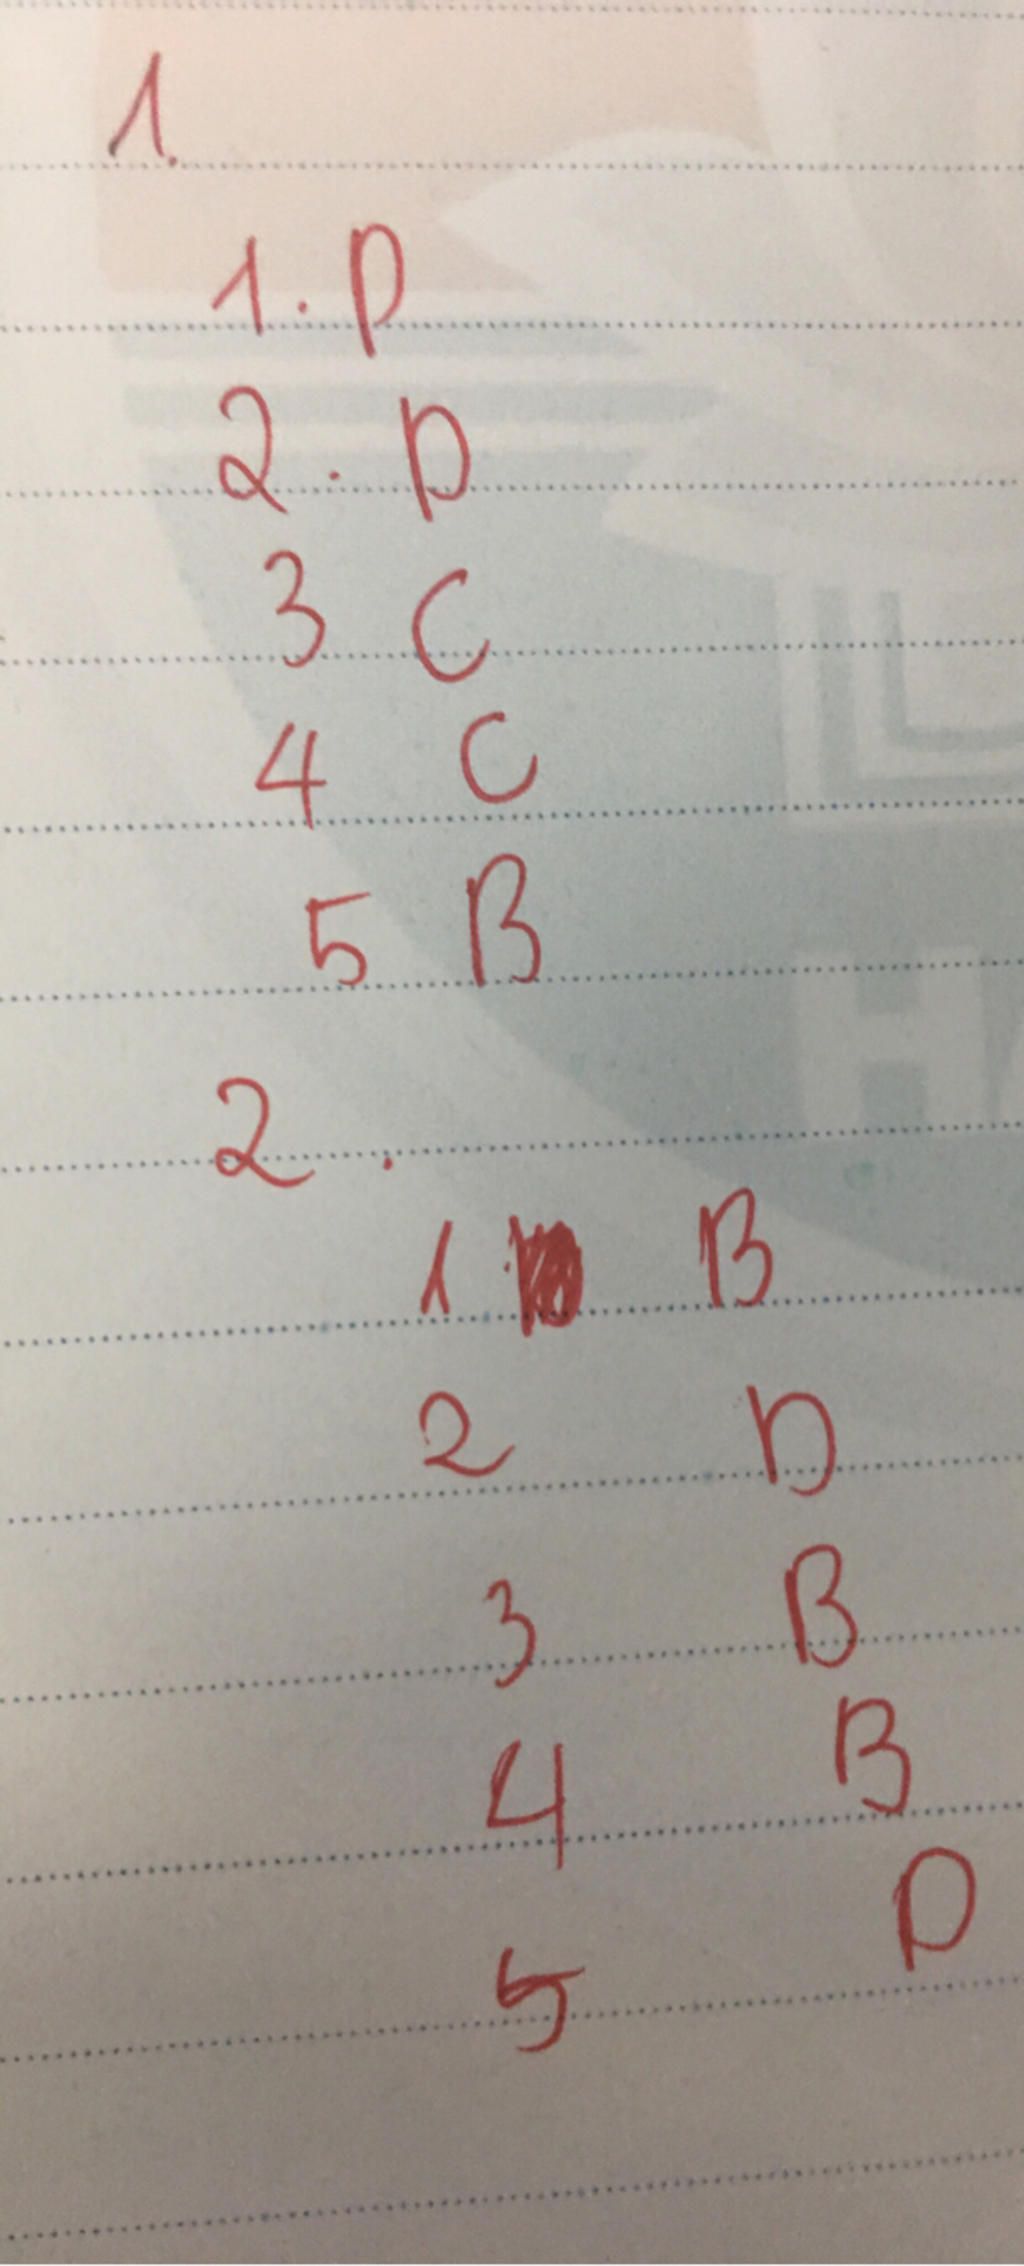 1.
1. D
2. D
3 C
4 C
5 B
2.
1 B
2 D
3 B
4 B
5 D